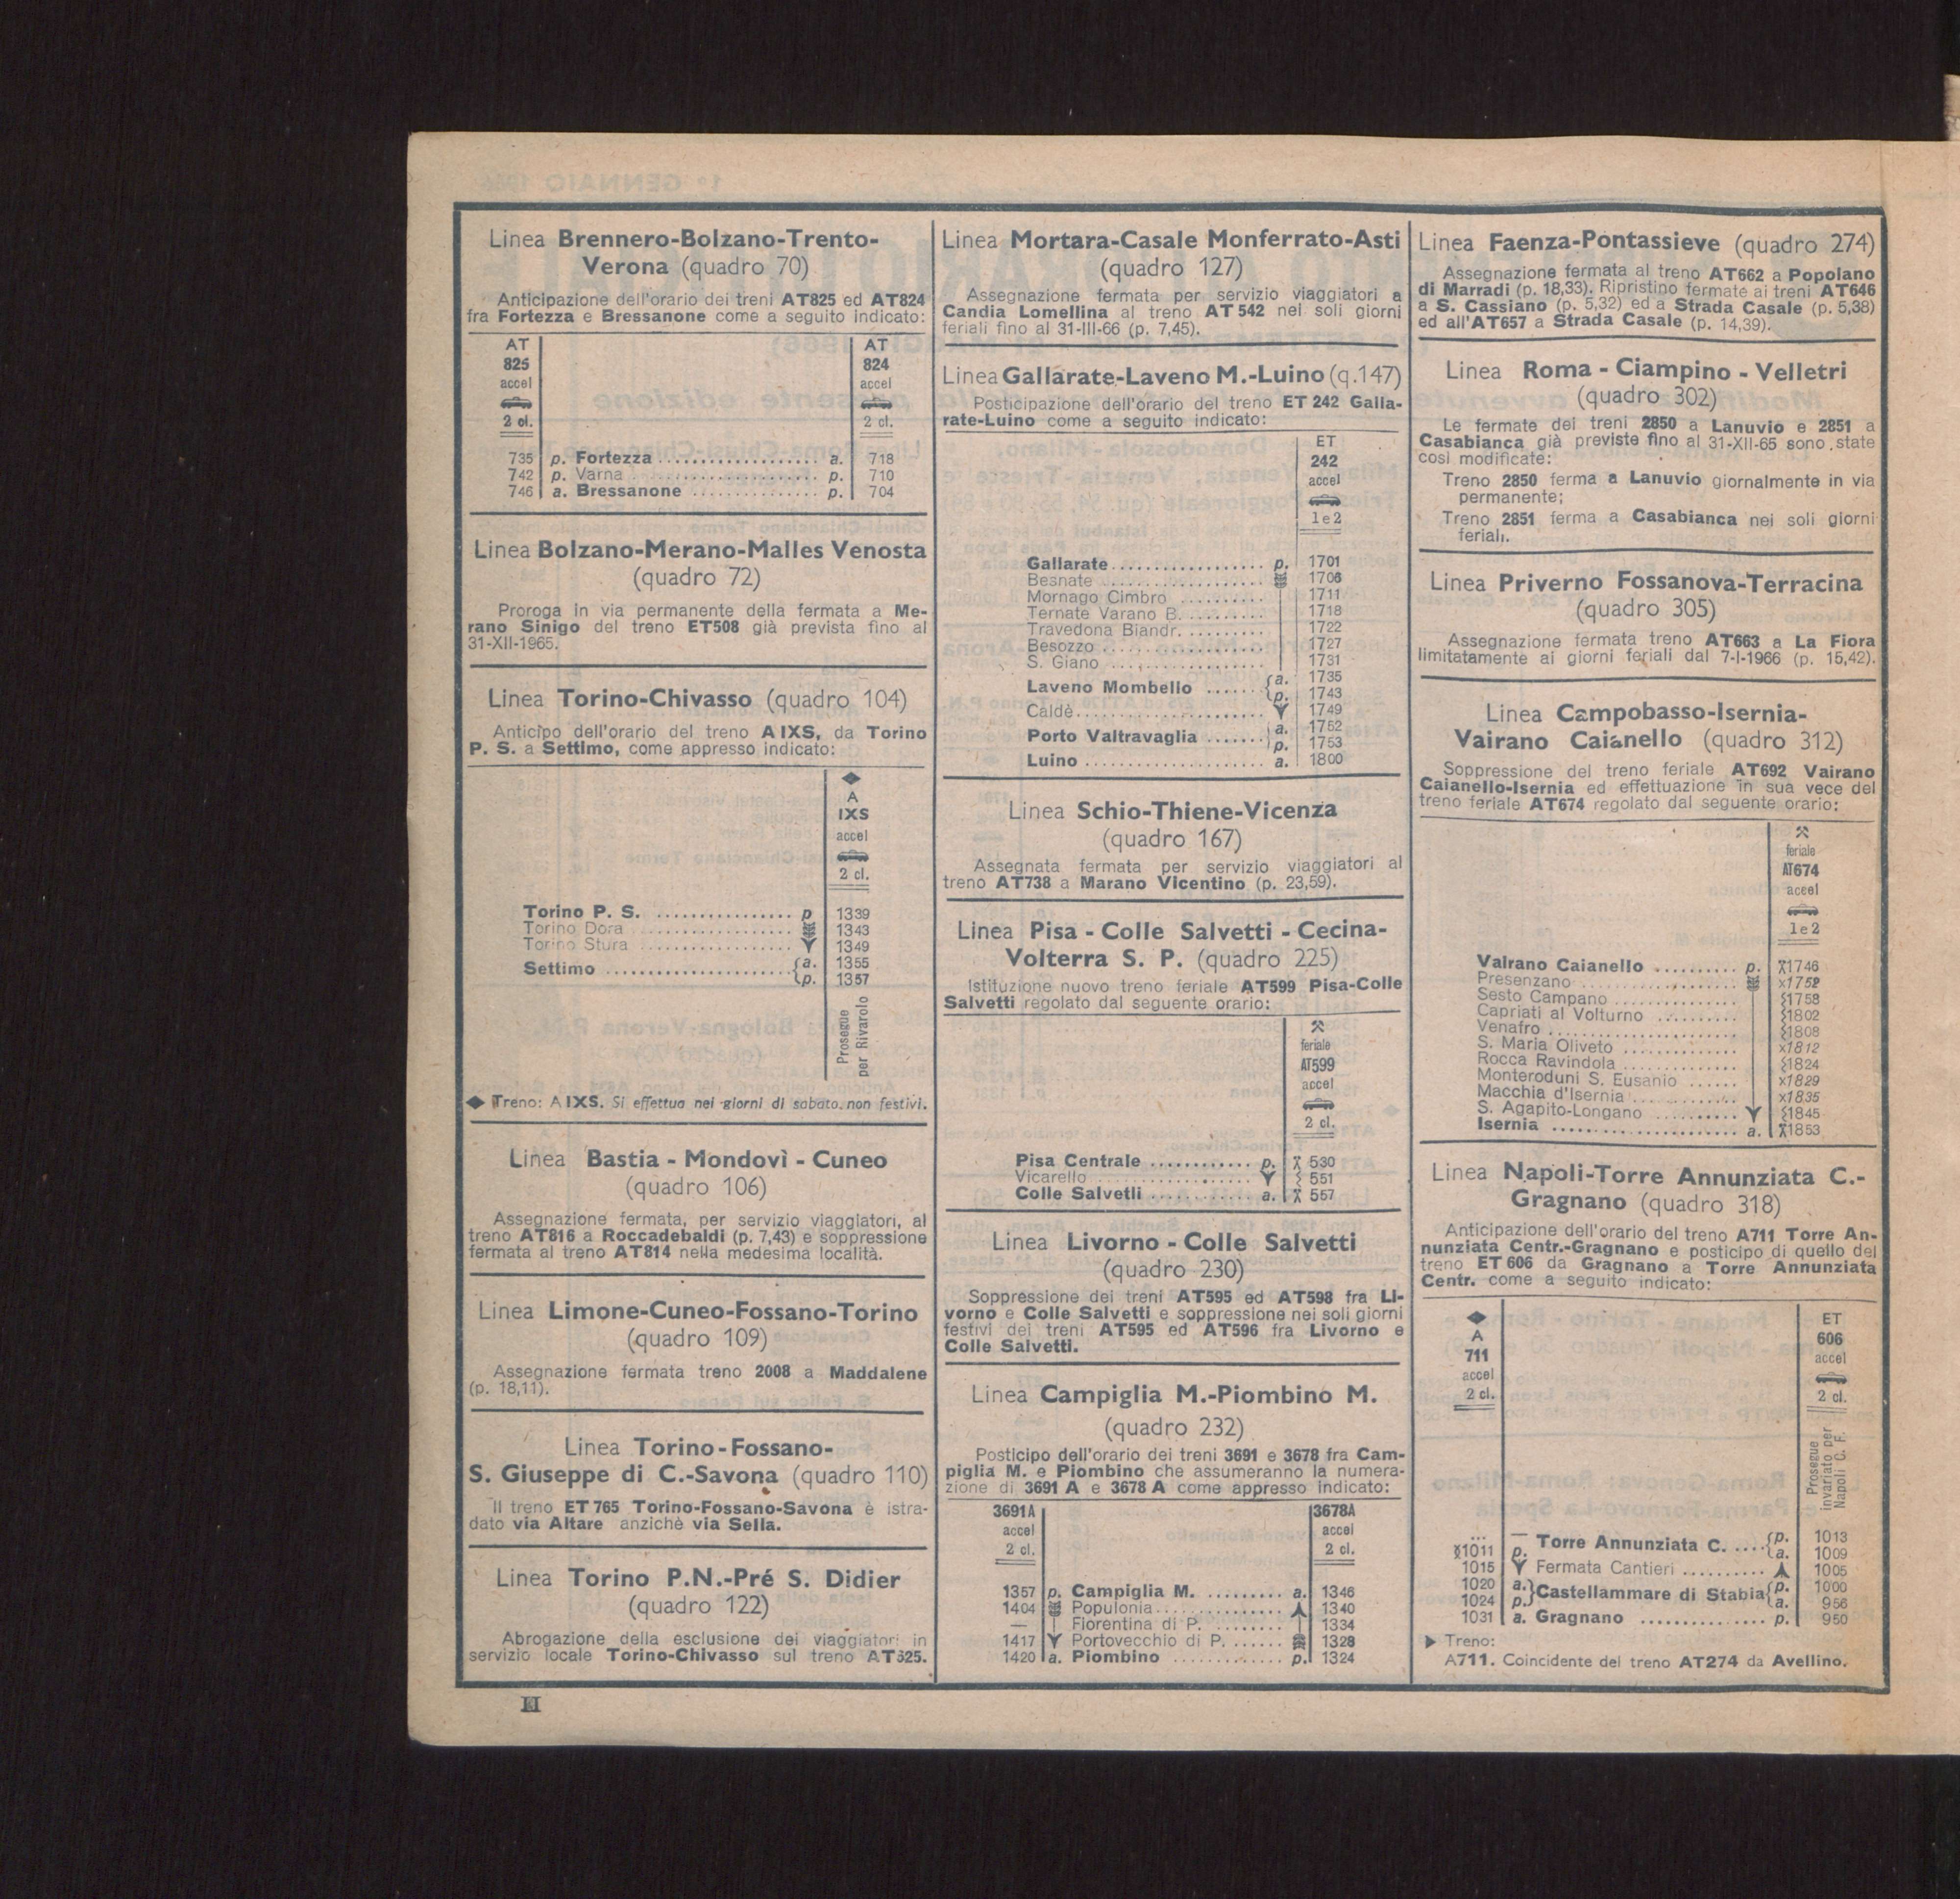 Linea Brennero-Bolzano-Trento-
Verona (quadro 70)
Anticipazione dell'orario dei treni AT825 ed AT824
fra Fortezza e Bressanone come a seguito indicato:
AT AT
825 824
accel accel
2 cl. 2 cl.
735 p. Fortezza .................. a. 718
742 p. Varna .................. p. 710
746 a. Bressanone .............. p. 704
Linea Bolzano-Merano-Malles Venosta
(quadro 72)
Proroga in via permanente della fermata a Me-
rano Sinigo del treno ET508 già prevista fino al
31-XII-1965.
Linea Torino-Chivasso (quadro 104)
Anticipo dell'orario del treno A IXS, da Torino
P. S. a Settimo, come appresso indicato:
◆
A
IXS
accel
2 cl.
Torino P. S. ................ p 1339
Torino Dora .................. 1343
Torino Stura .................. 1349
Settimo ....................... {a. 1355
{p. 1357
Prosegue
per Rivarolo
◆ Treno: A IXS. Si effettua nei giorni di sabato, non festivi.
Linea Bastia - Mondovì - Cuneo
(quadro 106)
Assegnazione fermata, per servizio viaggiatori, al
treno AT816 a Roccadebaldi (p. 7,43) e soppressione
fermata al treno AT814 nella medesima località.
Linea Limone-Cuneo-Fossano-Torino
(quadro 109)
Assegnazione fermata treno 2008 a Maddalene
(p. 18,11).
Linea Torino-Fossano-
S. Giuseppe di C.-Savona (quadro 110)
Il treno ET 765 Torino-Fossano-Savona è istra-
dato via Altare anzichè via Sella.
Linea Torino P.N.-Pré S. Didier
(quadro 122)
Abrogazione della esclusione dei viaggiatori in
servizio locale Torino-Chivasso sul treno AT325.
II
Linea Mortara-Casale Monferrato-Asti
(quadro 127)
Assegnazione fermata per servizio viaggiatori a
Candia Lomellina al treno AT 542 nei soli giorni
feriali fino al 31-III-66 (p. 7,45).
Linea Gallarate-Laveno M.-Luino (q.147)
Posticipazione dell'orario del treno ET 242 Galla-
rate-Luino come a seguito indicato:
ET
242
accel
1 e 2
Gallarate .................. p. 1701
Besnate .................. 1706
Mornago Cimbro .......... 1711
Ternate Varano B. ......... 1718
Travedona Biandr. ......... 1722
Besozzo .................. 1727
S. Giano .................. 1731
Laveno Mombello ....... {a. 1735
{p. 1743
Caldè ..................... 1749
Porto Valtravaglia ....... a. 1752
p. 1753
Luino ..................... a. 1800
Linea Schio-Thiene-Vicenza
(quadro 167)
Assegnata fermata per servizio viaggiatori al
treno AT738 a Marano Vicentino (p. 23,59).
Linea Pisa - Colle Salvetti - Cecina-
Volterra S. P. (quadro 225)
Istituzione nuovo treno feriale AT599 Pisa-Colle
Salvetti regolato dal seguente orario:
⚒
feriale
AT599
accel
2 cl.
Pisa Centrale ............ p. 530
Vicarello .................. 551
Colle Salvetti .............. a. 557
Linea Livorno - Colle Salvetti
(quadro 230)
Soppressione dei treni AT595 ed AT598 fra Li-
vorno e Colle Salvetti e soppressione nei soli giorni
festivi dei treni AT595 ed AT596 fra Livorno e
Colle Salvetti.
Linea Campiglia M.-Piombino M.
(quadro 232)
Posticipo dell'orario dei treni 3691 e 3678 fra Cam-
piglia M. e Piombino che assumeranno la numera-
zione di 3691 A e 3678 A come appresso indicato:
3691A 3678A
accel accel
2 cl. 2 cl.
1357 p. Campiglia M. ......... a. 1346
1404 Populonia ............... 1340
— Fiorentina di P. ........ 1334
1417 Portovecchio di P. ....... 1328
1420 a. Piombino ............. p. 1324
Linea Faenza-Pontassieve (quadro 274)
Assegnazione fermata al treno AT662 a Popolano
di Marradi (p. 18,33). Ripristino fermate ai treni AT646
a S. Cassiano (p. 5,32) ed a Strada Casale (p. 5,38)
ed all'AT657 a Strada Casale (p. 14,39).
Linea Roma - Ciampino - Velletri
(quadro 302)
Le fermate dei treni 2850 a Lanuvio e 2851 a
Casabianca già previste fino al 31-XII-65 sono state
così modificate:
Treno 2850 ferma a Lanuvio giornalmente in via
permanente;
Treno 2851 ferma a Casabianca nei soli giorni
feriali.
Linea Priverno Fossanova-Terracina
(quadro 305)
Assegnazione fermata treno AT663 a La Fiora
limitatamente ai giorni feriali dal 7-I-1966 (p. 15,42).
Linea Campobasso-Isernia-
Vairano Caianello (quadro 312)
Soppressione del treno feriale AT692 Vairano
Caianello-Isernia ed effettuazione in sua vece del
treno feriale AT674 regolato dal seguente orario:
⚒
feriale
AT674
accel
1 e 2
Vairano Caianello .......... p. 1746
Presenzano .................. x1752
Sesto Campano .............. 1758
Capriati al Volturno .......... 1802
Venafro .................. 1808
S. Maria Oliveto ............ x1812
Rocca Ravindola ............ 1824
Monteroduni S. Eusanio ...... x1829
Macchia d'Isernia ............ x1835
S. Agapito-Longano .......... 1845
Isernia ..................... a. 1853
Linea Napoli-Torre Annunziata C.-
Gragnano (quadro 318)
Anticipazione dell'orario del treno A711 Torre An-
nunziata Centr.-Gragnano e posticipo di quello del
treno ET 606 da Gragnano a Torre Annunziata
Centr. come a seguito indicato:
◆ ET
A 606
711 accel
accel 2 cl.
2 cl.
Prosegue
invariato per
Napoli C. F.
... — Torre Annunziata C. .... {p. 1013
1011 p. {a. 1009
1015 Fermata Cantieri .......... 1005
1020 a.} Castellammare di Stabia {p. 1000
1024 p.} {a. 956
1031 a. Gragnano ............... p. 950
▶ Treno:
A711. Coincidente del treno AT274 da Avellino.